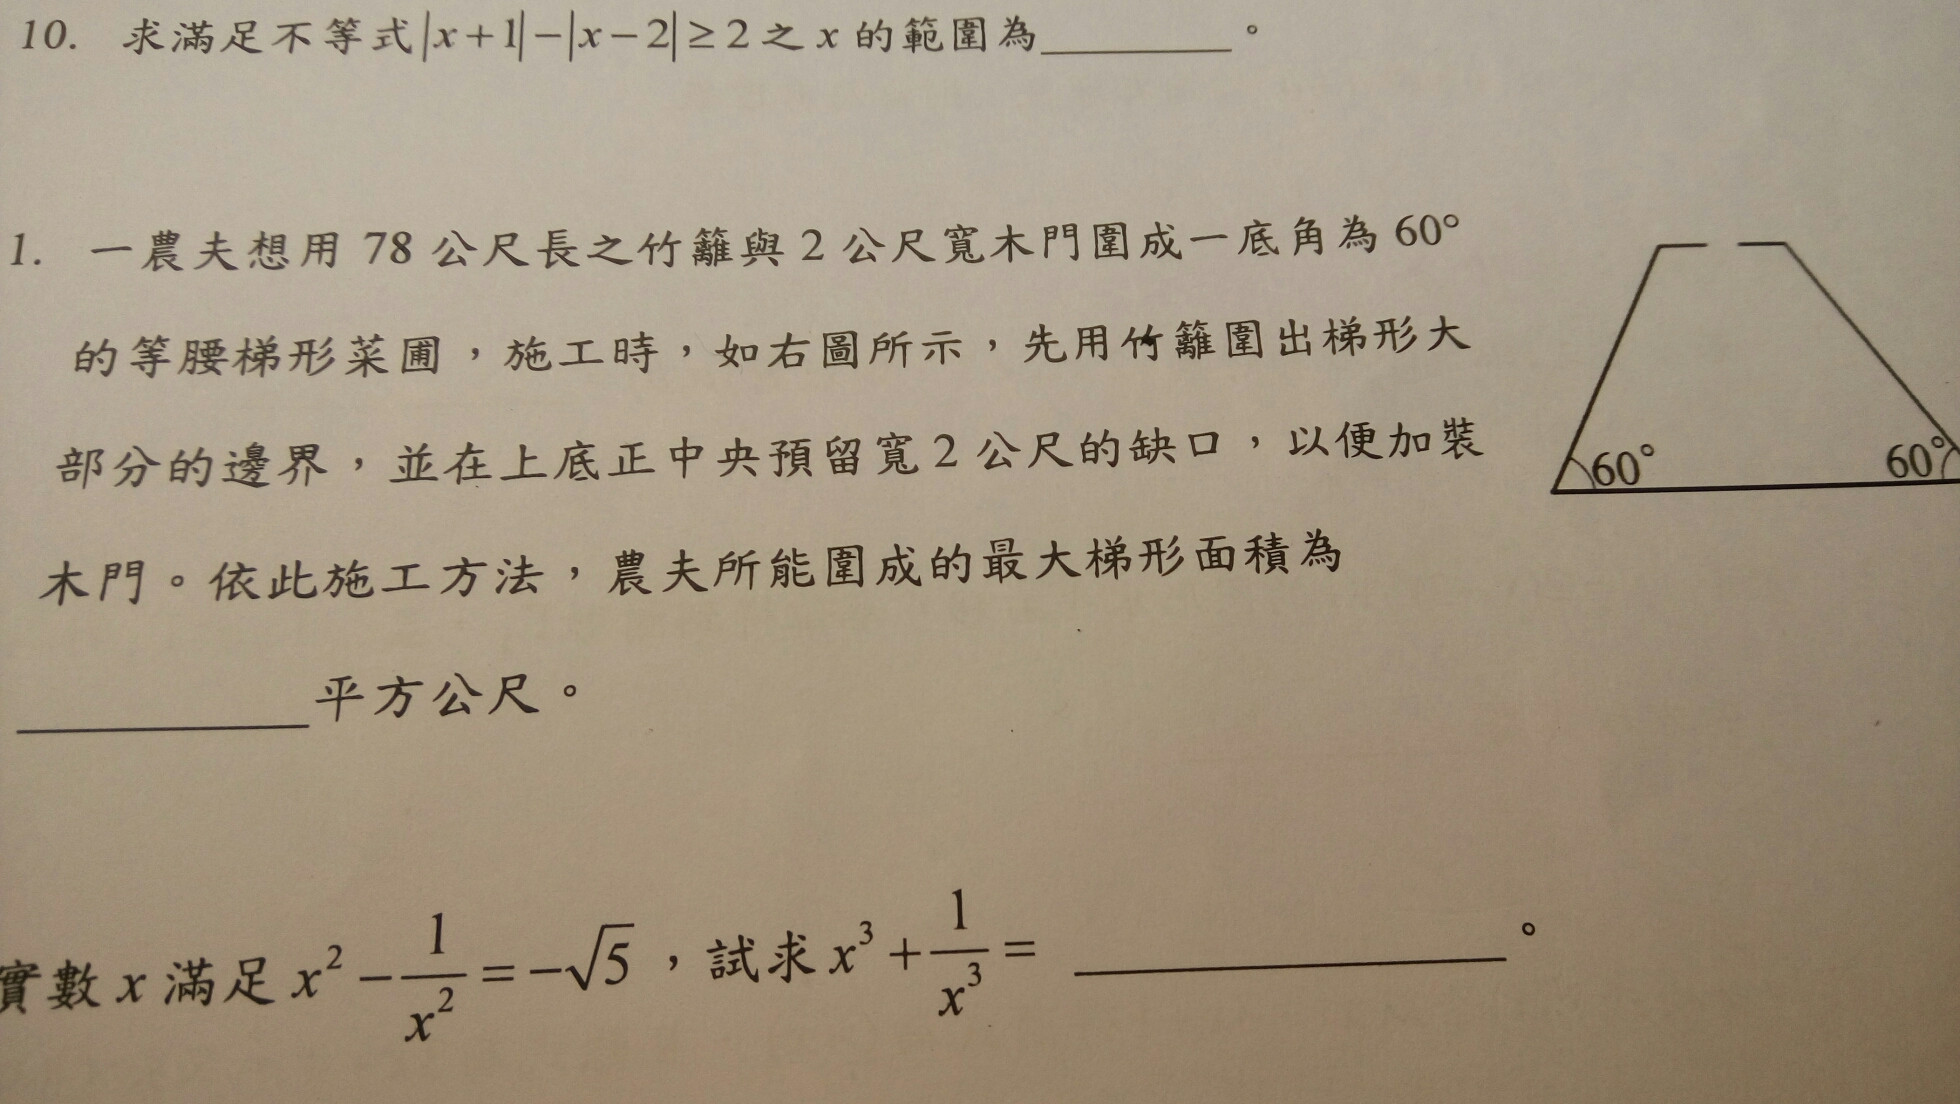 10. 求滿足不等式|x+1|−|x−2|≥2之 x 的範圍為______。
1. 一農夫想用 78 公尺長之竹籬與 2 公尺寬木門圍成一底角為 60°
的等腰梯形菜圃，施工時，如右圖所示，先用竹籬圍出梯形大
部分的邊界，並在上底正中央預留寬 2 公尺的缺口，以便加裝
木門。依此施工方法，農夫所能圍成的最大梯形面積為
______平方公尺。
60° 60°
實數 x 滿足 x² − 1/x² = −√5，試求 x³ + 1/x³ = ______。